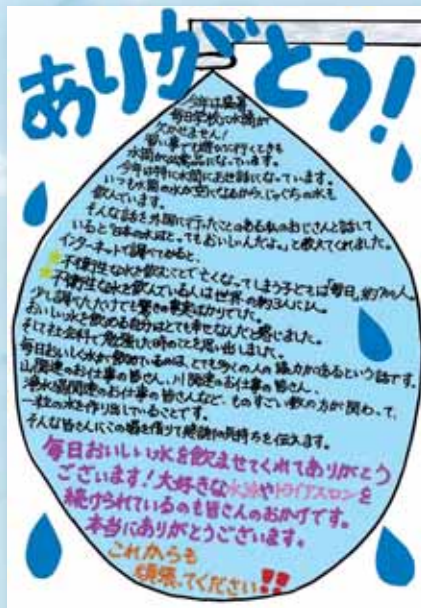 ありがとう!
今年は猛暑
毎日学校に水筒が
欠かせません!
習い事でも遊びに行くときも
水筒が必需品になっています。
今年は特に水筒にお世話になっています。
いつも水筒の水が空になるから、じゃぐちの水も
飲んでいます。
そんな話を外国に行ったことのある私のおじさんと話して
いると「日本の水はとってもおいしいんだよ。」と教えてくれました。
インターネットで調べてみると、
不衛生な水を飲むことで亡くなってしまう子どもは「毎日」約700人。
不衛生な水を飲んでいる人は世界の約3人に1人。
少し調べただけでも驚きの事実ばかりでした。
おいしい水を飲める自分はとても幸せなんだと感じました。
そして社会科で勉強した時のことを思い出しました。
毎日おいしく水が飲めているのは、とても多くの人の協力があるという話です。
山関連のお仕事の皆さん、川関連のお仕事の皆さん、
浄水場関連のお仕事の皆さんなど、ものすごい数の方が関わって、
一杯の水を作り出していることです。
そんな皆さんにこの場を借りて感謝の気持ちを伝えます。
毎日おいしい水を飲ませてくれてありがとう
ございます!大好きな水泳やトライアスロンを
続けられているのも皆さんのおかげです。
本当にありがとうございます。
これからも
頑張ってください!!